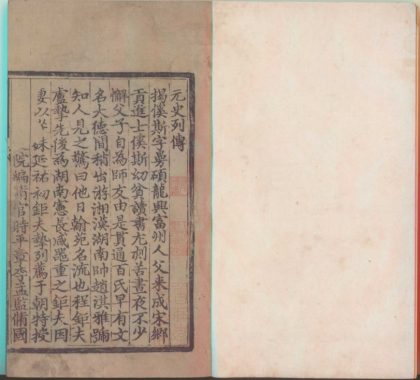 元史列傳
揭傒斯字曼碩龍興富州人父來成宋鄉
貢進士傒斯幼貧讀書尤刻苦晝夜不少
懈父子自為師友由是貫通百氏早有文
名大德間稍出游湘漢湖南帥趙淇雅號
知人見之驚曰他日翰苑名流也程鉅夫
盧摯先後為湖南憲長咸器重之鉅夫因
妻以從妹延祐初鉅夫摯列薦于朝特授
院編脩官時平章李孟監脩國